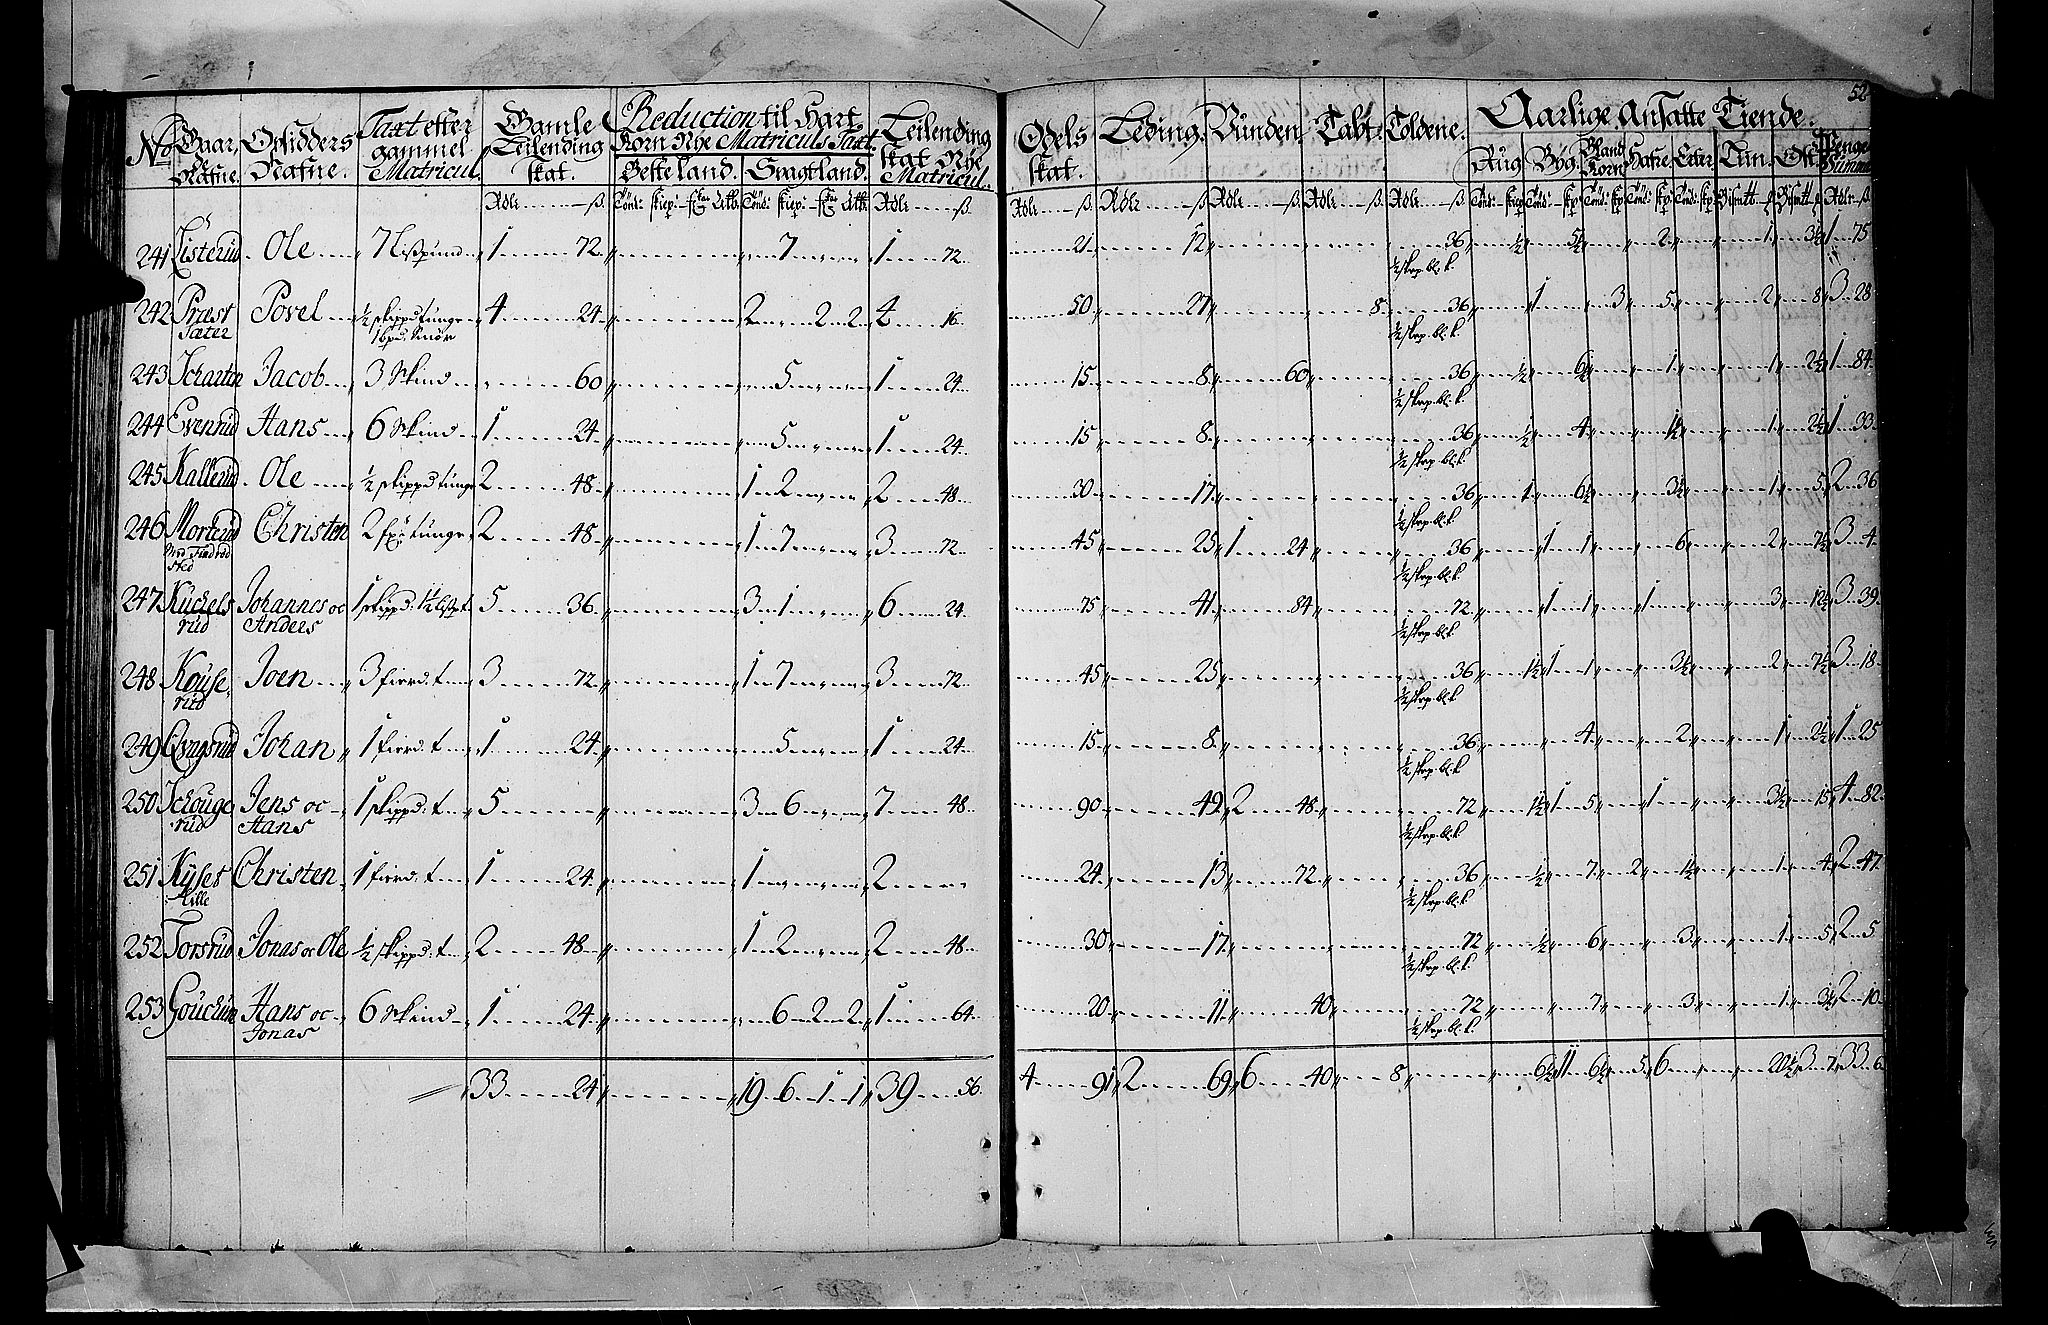 52
No Gaar, Opsidders Taxt efter Gamle Reduction til Hart Leilending Odels Leding. Vunden. Tabt. Toldene. Aarlige Ansatte Tiende.
Nafne. Nafne. gammel Leilending Korn Nye Matriculs Taxt. skat Nye skat. Rug Byg Bland Korn Hafre Erter Tün. Ost. Penge Summa
Matricul. skat. Beste land. Svagtland. Matricul.
241 Listerüd Ole 7 Lispund 1 72 7 1 72 21 12 36 ½ 5½ 2 1 3½ 1 75
½ skrp. bl: k.
242 Præst Povel ½ skippd tunge 4 24 2 2 2 4 16 50 27 8 36 1 3 5 2 8 3 28
Sæter 1 bpd. Smör ½ skrp. bl: k.
243 Scharten Jacob 3 Skind 60 5 1 24 15 8 60 36 ½ 6½ 1 1 2½ 1 84
½ skrp. bl: k.
244 Evenrüd Hans 6 Skind 1 24 5 1 24 15 8 36 ½ 4 1½ 1 2½ 1 33
½ skrp. bl: k.
245 Kallerüd Ole ½ skippd tunge 2 48 1 2 2 48 30 17 36 1 6½ 3½ 1 5 2 36
½ skrp. bl: k.
246 Morterüd Christen 2 fx: tunge 2 48 1 7 3 72 45 25 1 24 36 1 1 6 2 7½ 3 4
sted ½ skrp. bl: k.
247 Küchels Johannes oc 1 skippd: 1½ 5 36 3 1 6 24 75 41 84 72 1 1 1 3 12½ 3 39
rüd Anders ½ skrp. bl: k.
248 Kouse Joen 3 fierd: t 3 72 1 7 3 72 45 25 36 1½ 1 1 3½ 2 7½ 3 18
rüd ½ skrp. bl: k.
249 Qvagsrüd Johan 1 fierd: t 1 24 5 1 24 15 8 36 4 2 1 2½ 1 25
½ skrp. bl: k.
250 Schouge Jens oc 1 skippd: t 5 3 6 7 48 90 49 2 48 72 1½ 1 5 1 3½ 15 4 82
rüd Hans ½ skrp. bl: k.
251 Kyset Christen 1 fierd: t 1 24 1 2 24 13 72 36 ½ 7 2 1½ 1 4 2 47
Lille ½ skrp. bl: k.
252 Torsrüd Jonas oc Ole ½ skippd: t 2 48 1 2 2 48 30 17 72 ½ 6 3 1 5 2 5
½ skrp. bl: k.
253 Goucherüd Hans oc 6 Skind 1 24 6 2 2 1 64 20 11 40 72 7 3 1 3½ 2 10
Jonas ½ skrp. bl: k.
33 24 19 6 1 1 39 56 4 91 2 69 6 40 8 6½ 11 6½ 5 6 20½ 3 7 33 6